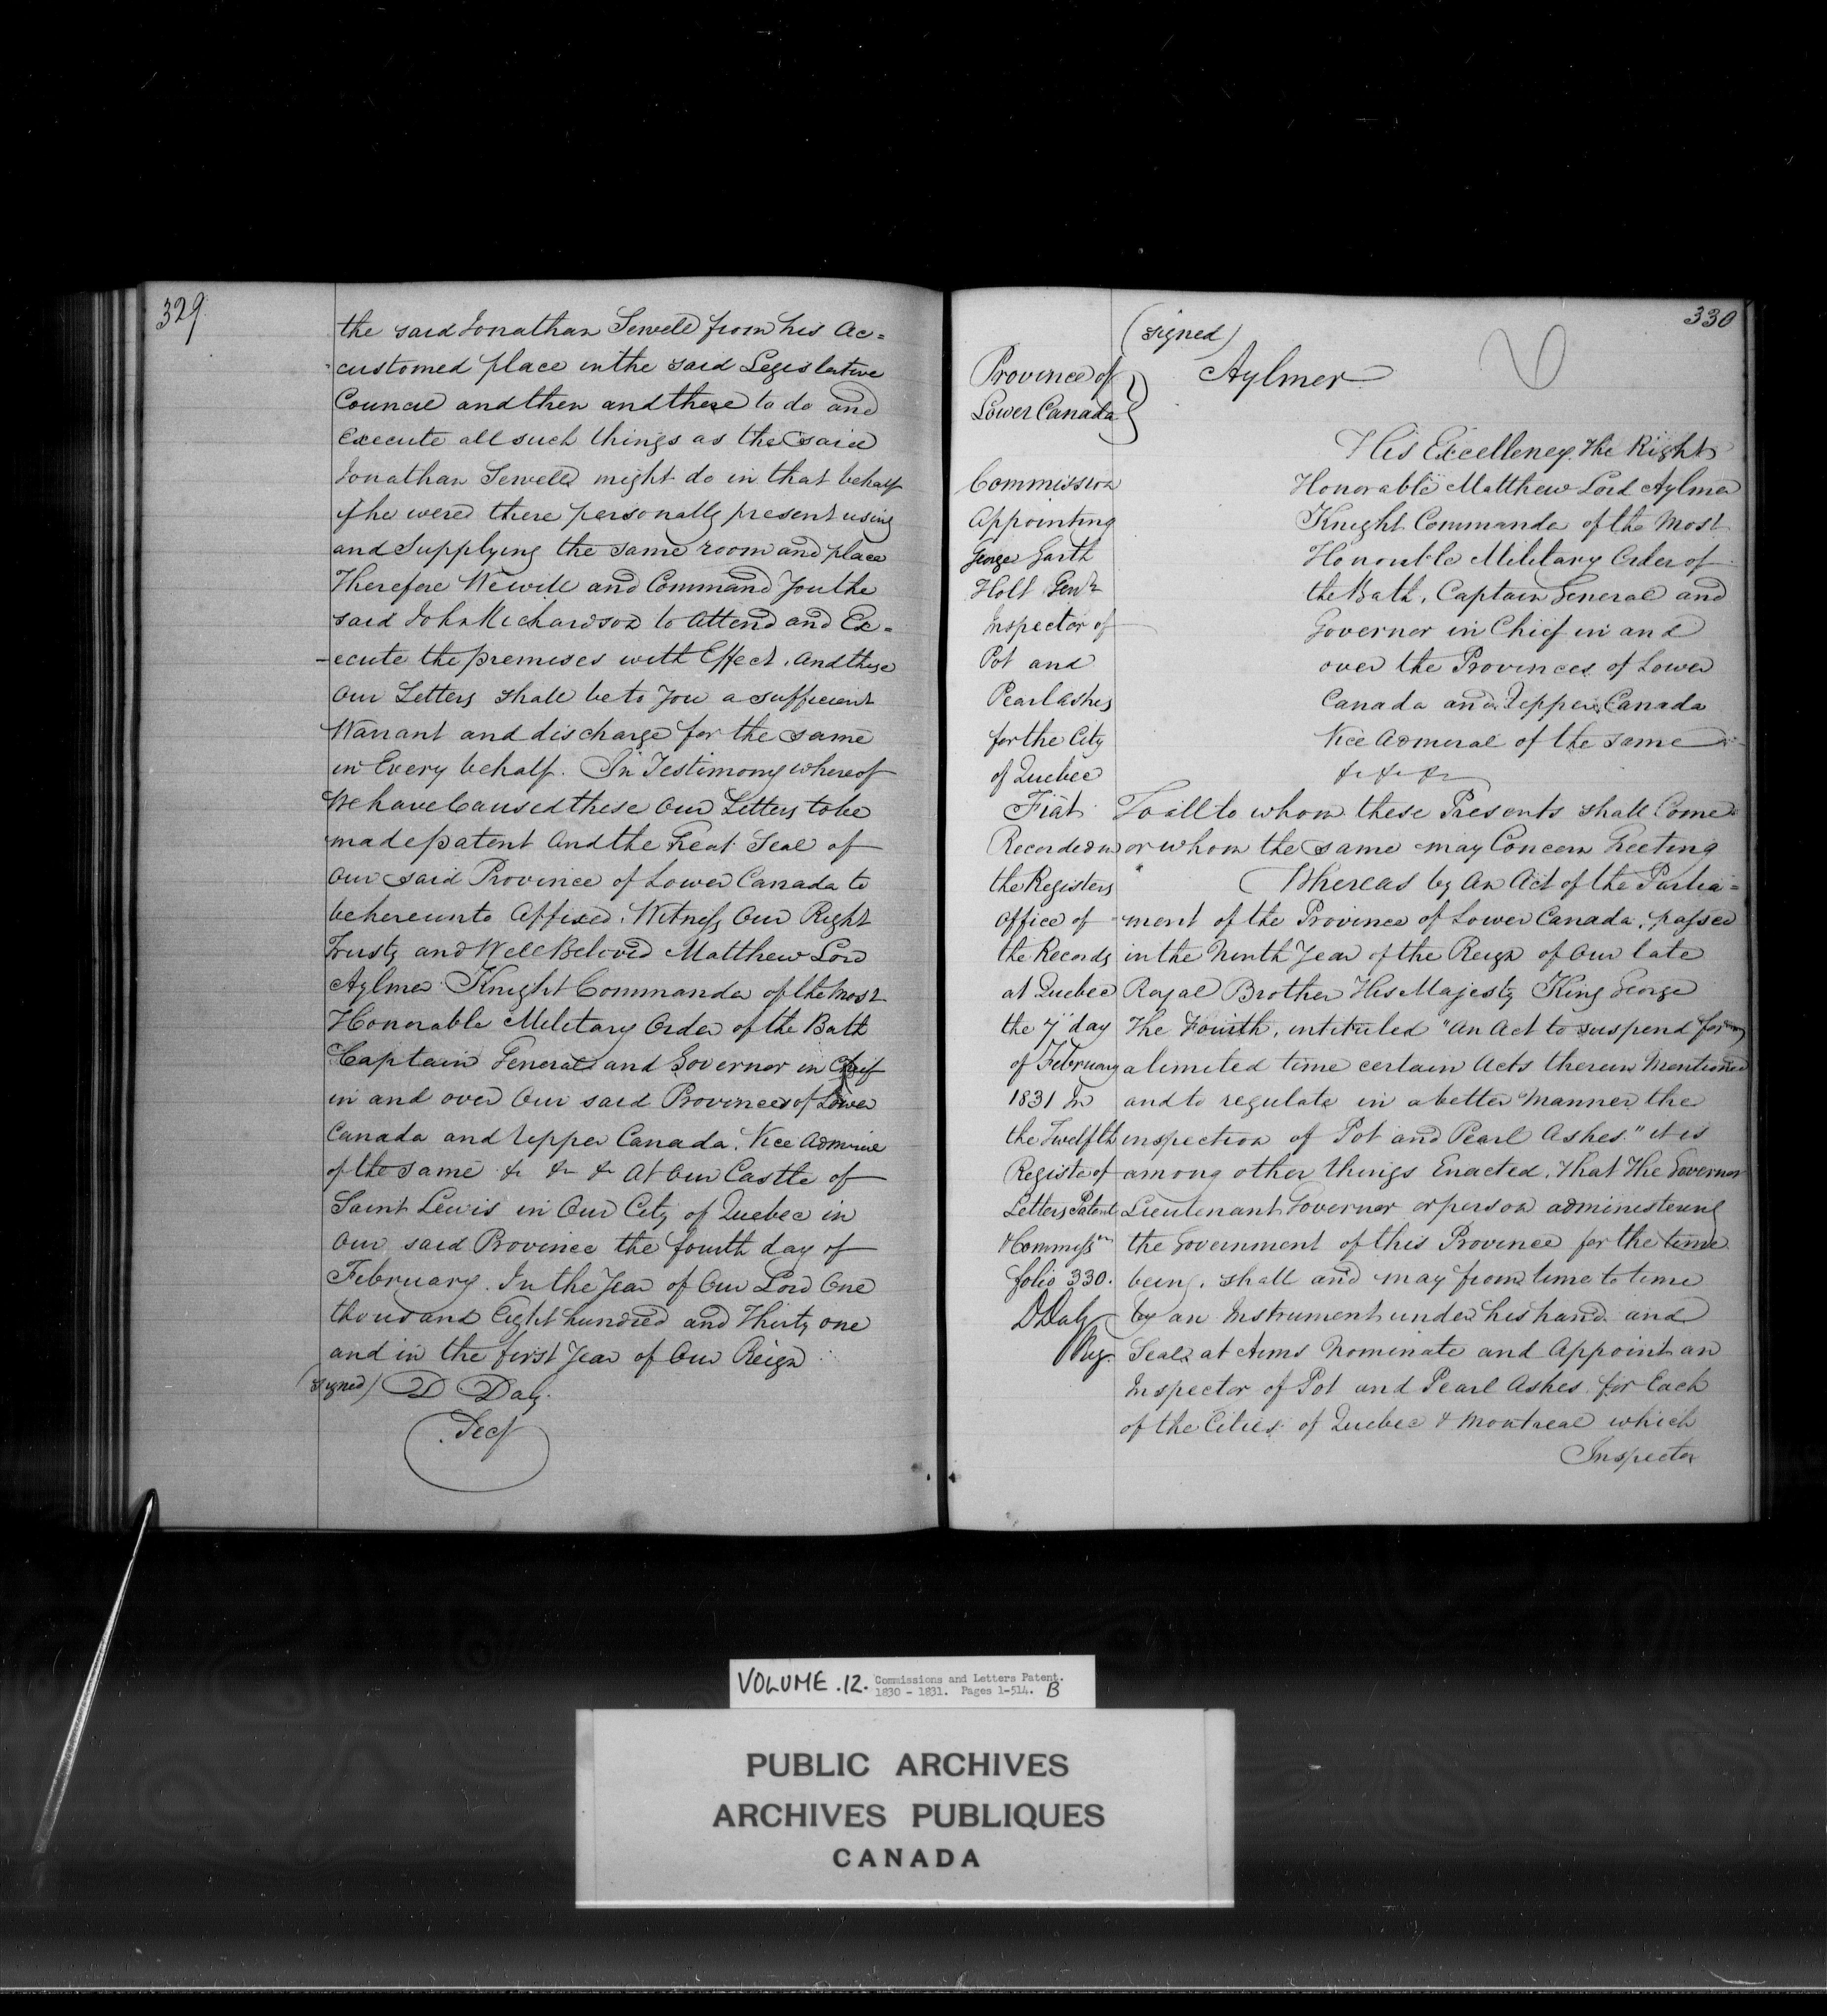 329
the said Jonathan Sewell from his Ac=
customed place in the said Legislative
Council and then and there to do and
Execute all such things as the said
Jonathan Sewell might do in that behalf
if he were there personally present using
and Supplying the same room and place
Therefore We will and Command You the
said John Richardson to attend and Ex=
-ecute the premises with Effect. And these
Our Letters shall be to You a sufficient
Warrant and discharge for the same
in Every behalf. In Testimony whereof
We have Caused these Our Letters to be
made patent And the Great Seal of
Our said Province of Lower Canada to
be hereunto Affixed. Witness Our Right
Trusty and Well Beloved Matthew Lord
Aylmer Knight Commander of the Most
Honorable Military Order of the Bath
Captain General and Governor in Chief
in and over Our said Provinces of Lower
Canada and Upper Canada, Vice Admiral
of the same &c &c &c At Our Castle of
Saint Lewis in Our City of Quebec in
Our said Province the fourth day of
February. In the Year of Our Lord One
thousand Eight hundred and Thirty one
and in the first Year of Our Reign
(signed) D Daly.
Secy
330
(signed)
Aylmer
Province of
Lower Canada
His Excellency The Right
Honorable Matthew Lord Aylmer
Knight Commander of the Most
Honorable Military Order of
the Bath, Captain General and
Governor in Chief in and
over the Provinces of Lower
Canada and Upper Canada
Vice Admiral of the same
&c &c &c
Commission
Appointing
George Garth
Holt Gentn
Inspector of
Pot and
Pearl ashes
for the City
of Quebec
Fiat
Recorded in
the Registers
Office of
the Records
at Quebec
the 7" day
of February
1831 In
the Twelfth
Register of
Letters Patent
& Commissns
folio 330.
D Daly
Reg.
To all to whom these Presents shall Come
or whom the same may Concern Greeting
Whereas by An Act of the Parlia=
ment of the Province of Lower Canada, passed
in the Ninth Year of the Reign of Our late
Royal Brother His Majesty King George
The Fourth, intituled "An Act to suspend for
a limited time certain Acts therein Mentioned
and to regulate in a better Manner the
inspection of Pot and Pearl Ashes." it is
among other things Enacted. that The Governor
Lieutenant Governor or person administering
the Government of this Province for the time
being, shall and may from time to time
by an Instrument under his hand and
Seal at Arms Nominate and Appoint an
Inspector of Pot and Pearl Ashes for Each
of the Cities of Quebec & Montreal which
Inspector
VOLUME.12. Commissions and Letters Patent.
1830 - 1831. Pages 1-514. B
PUBLIC ARCHIVES
ARCHIVES PUBLIQUES
CANADA